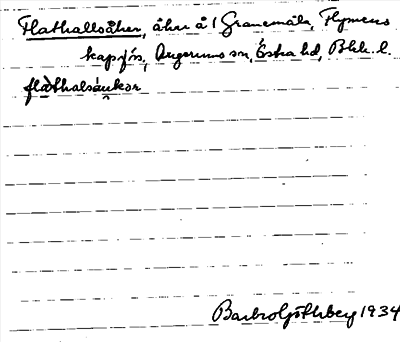 Flathallsåker, åker å 1 Granemåla, Flymens
kapförs., Augerums sn, Östra hd, Blek. l.
flathalsåukər
Barbro Götberg 1934